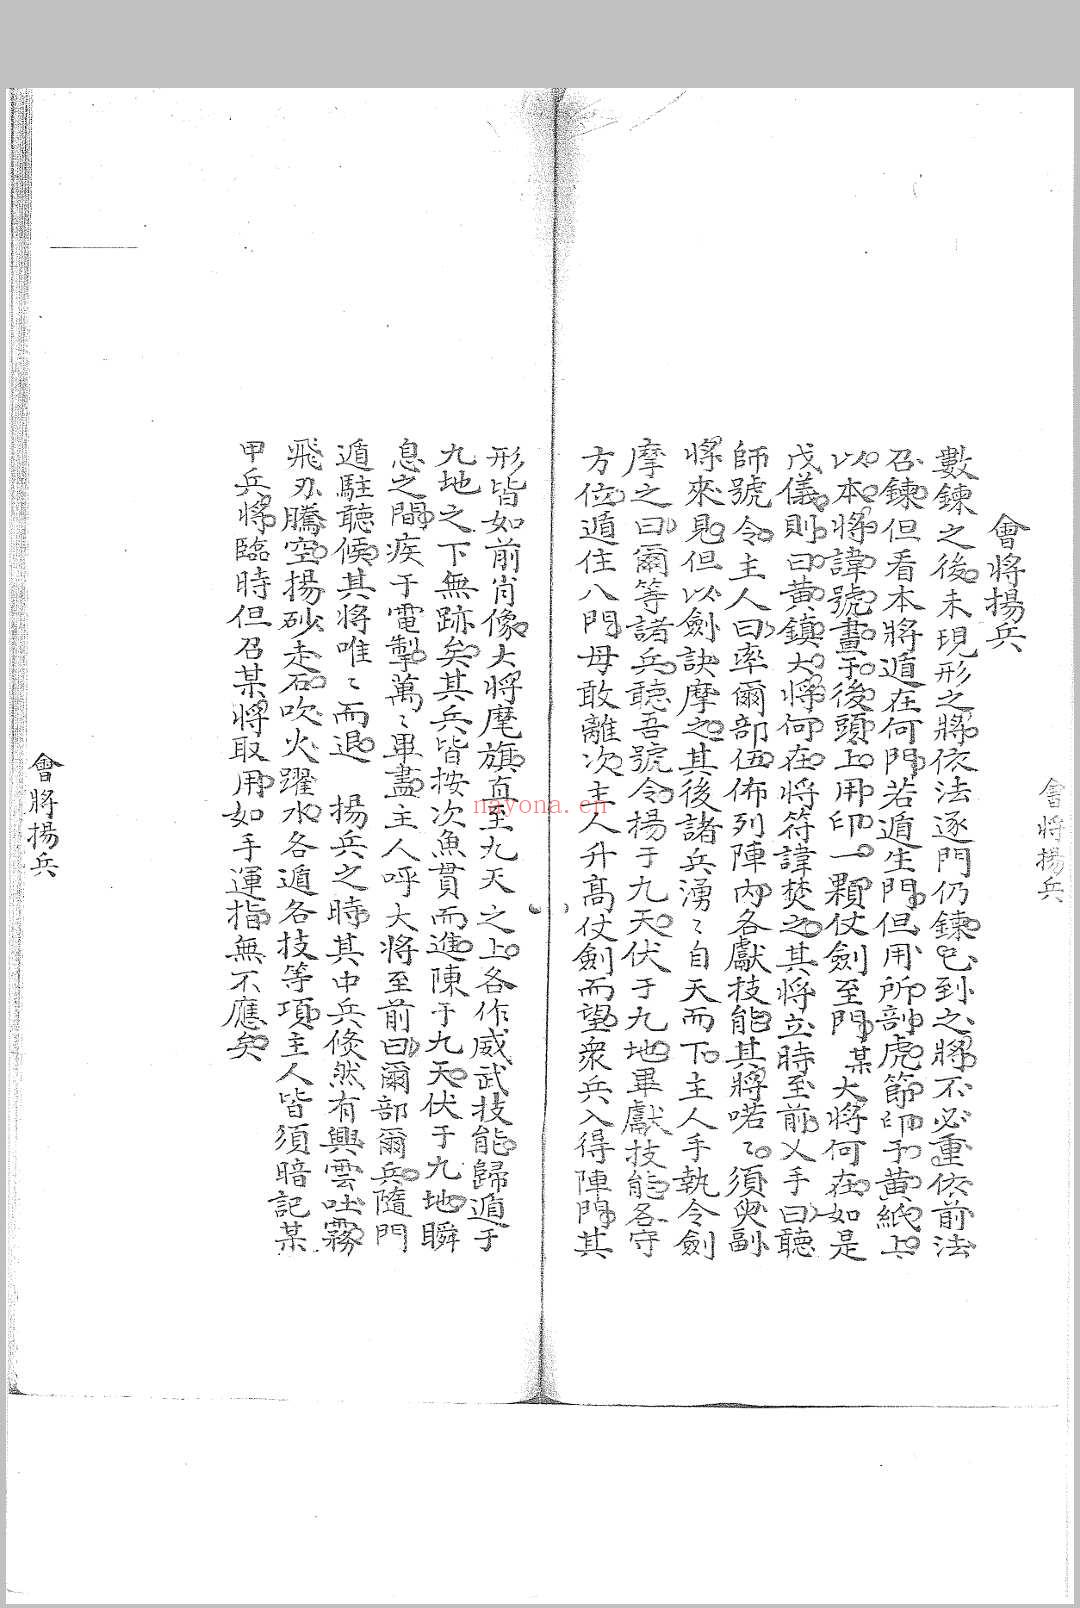 會將揚兵
會將揚兵
數鍊之後未現形之將依法逐門仍鍊已到之將不必重依前法
召鍊但看本將遁在何門若遁生門但用所剖虎節印于黃紙上
以本將諱號晝于後頭上用印一顆仗劍至門某大將何在如是
戊儀則曰黃鎮大將何在將符諱焚之其將立時至前乂手曰聽
師號令主人曰率爾部伍佈列陣內各獻技能其將喏〻須臾副
將來見但以劍訣摩之其後諸兵湧〻自天而下主人手執令劍
摩之曰爾等諸兵聽吾號令揚于九天伏于九地畢獻技能各守
方位遁住八門毋敢離次主人升高仗劍而望衆兵入得陣門其
形皆如前肖像大將麾旗直至九天之上各作威武技能歸遁于
九地之下無跡矣其兵皆按次魚貫而進陳于九天伏于九地瞬
息之間疾于電掣萬〻畢盡主人呼大將至前曰爾部爾兵隨門
遁駐聽候其將唯〻而退 揚兵之時其中兵倐然有興雲吐霧
飛刅騰空揚砂走石吹火躍水各遁各技等項主人皆須暗記某
甲兵將臨時但召某將取用如手運指無不應矣
會將揚兵
nayona.cn